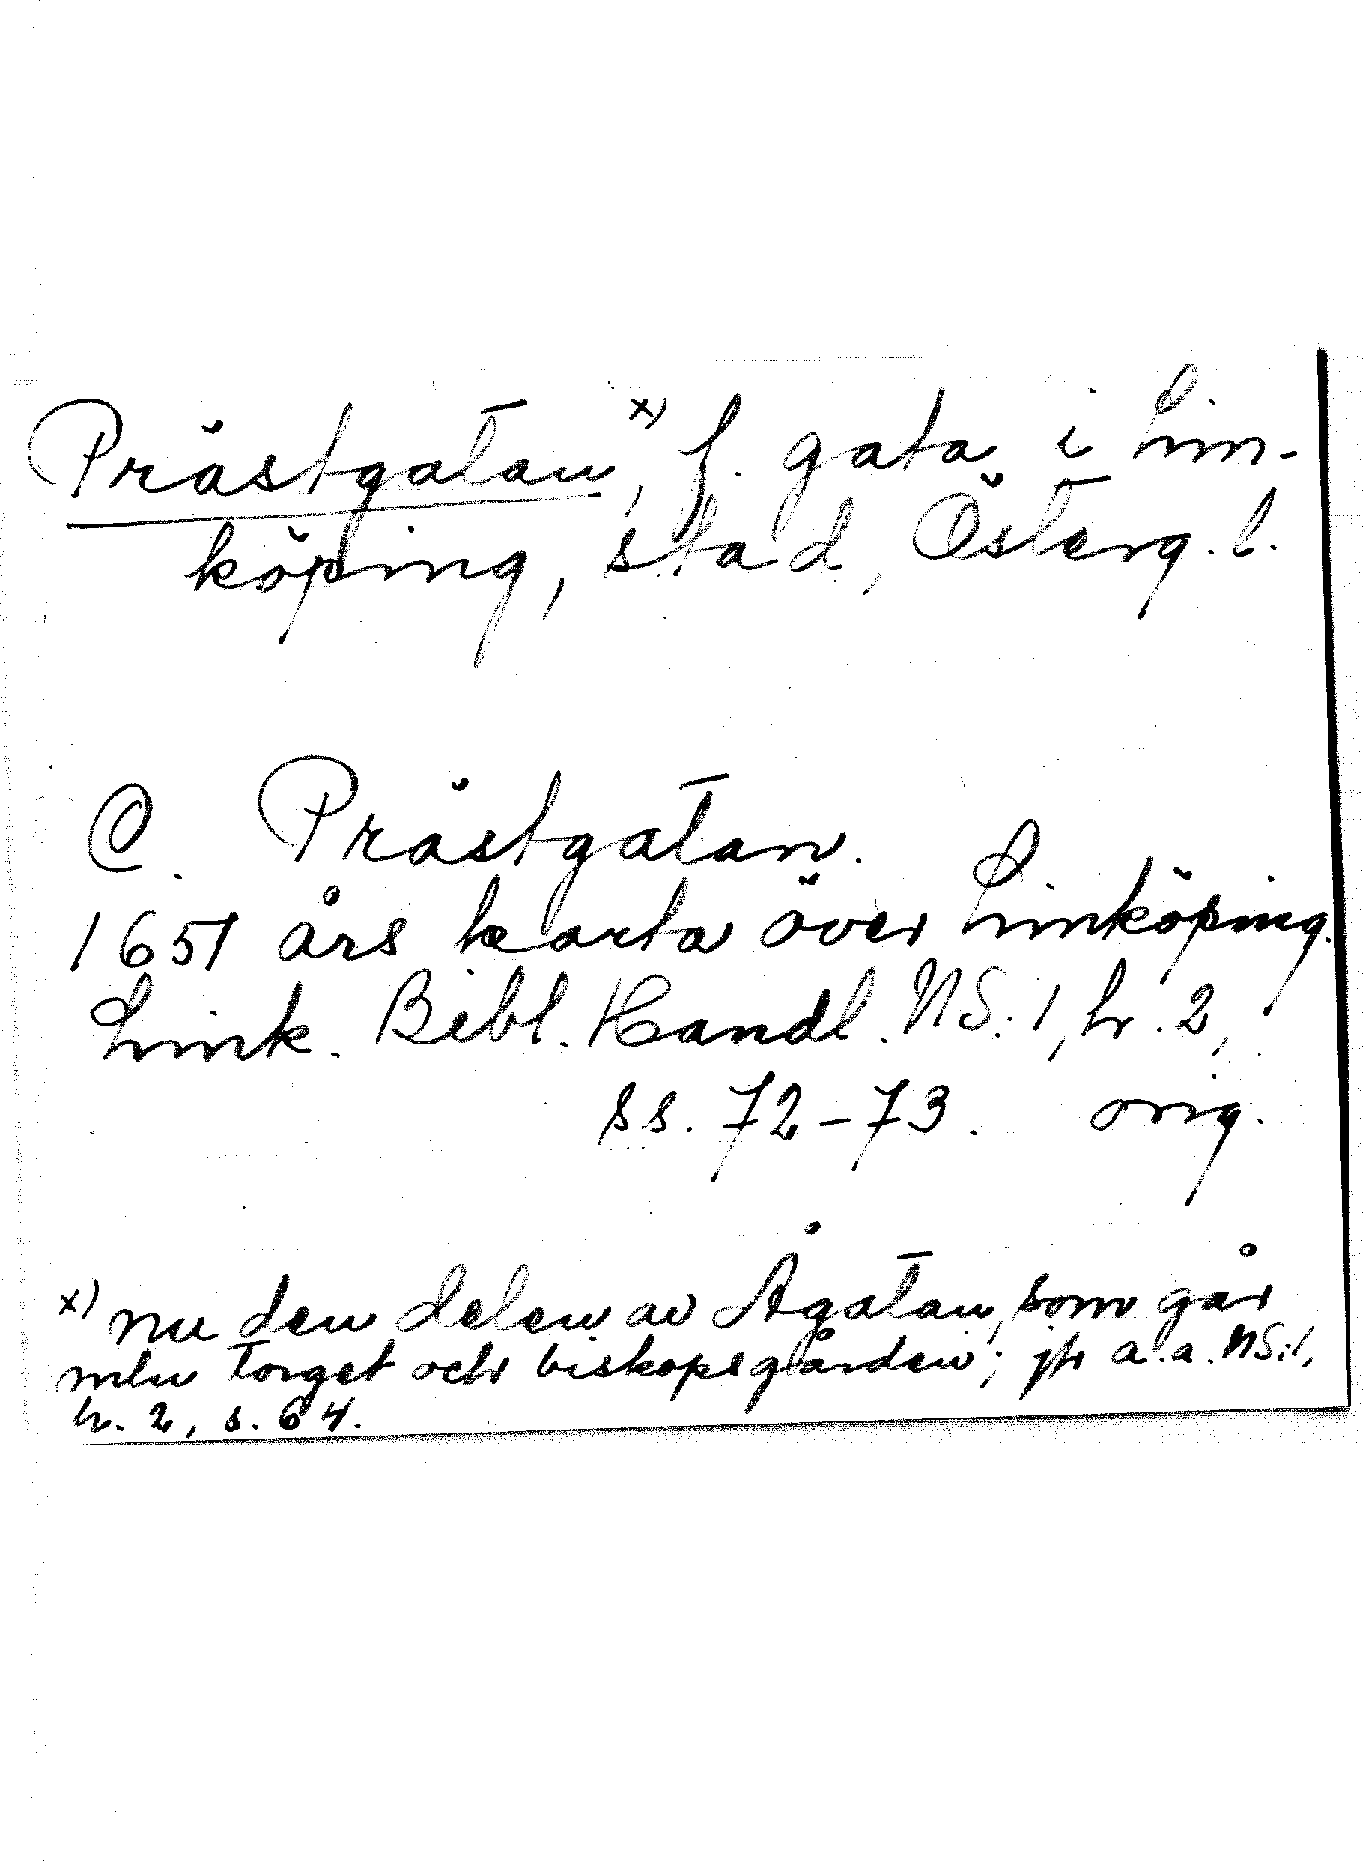 Prästgatan ˣ⁾, f. gata i Lin-
köping, stad, Österg. l.
@. Prästgatan.
1651 års karta över Linköping.
Link. Bibl. Handl. NS: 1, h. 2,
ss. 72–73. orig.
x) nu den delen av Ågatan, som går
mln torget och biskopsgården; jfr a.a. NS: 1,
h. 2, s. 64.